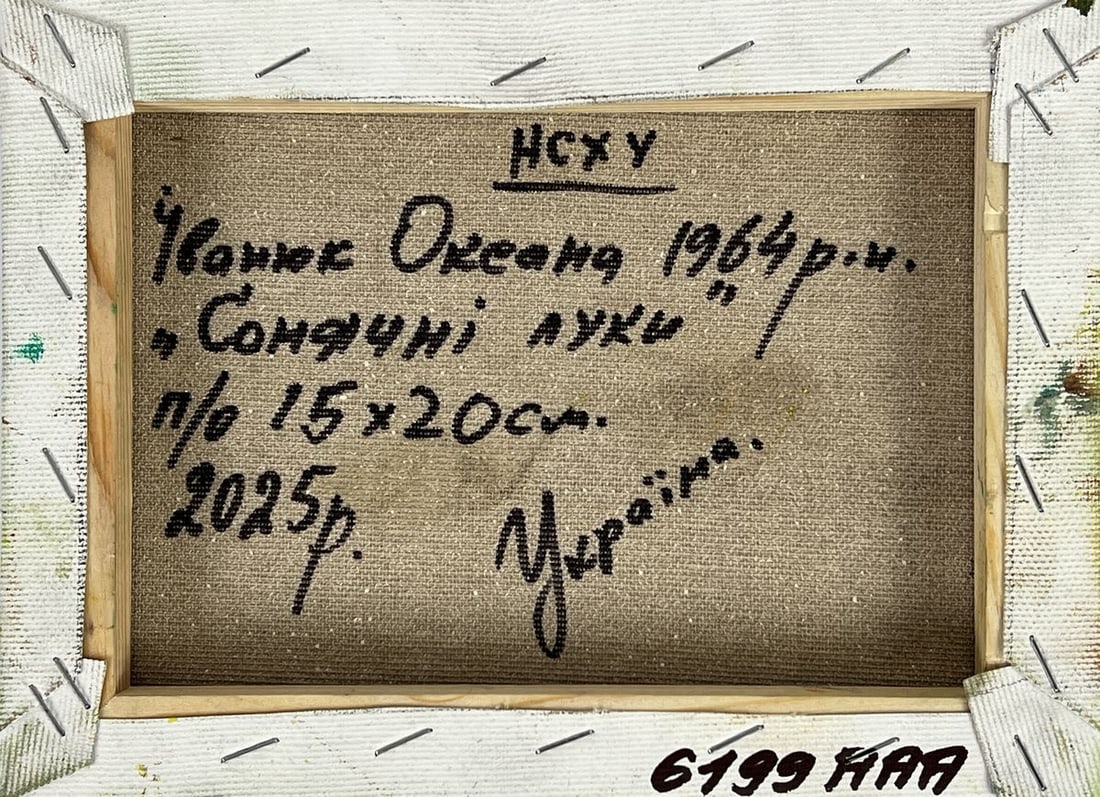 НСХУ
Іванюк Оксана 1964 р.н.
„Сонячні луки"
п/о 15х20см.
2025р.
Україна.
6199 НАА